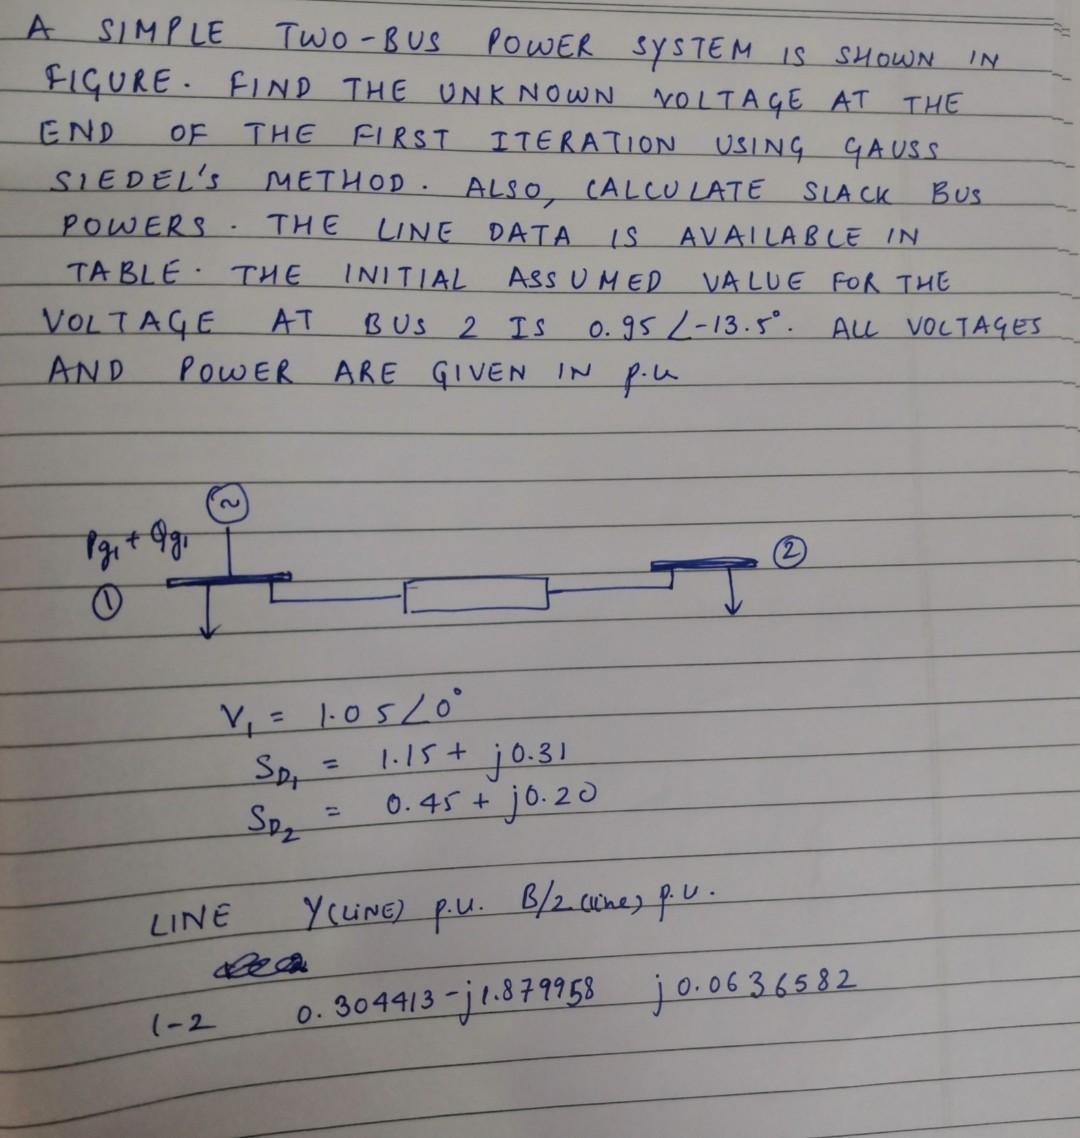 A SIMPLE TWO-BUS POWER SYSTEM IS SHOWN IN
FIGURE. FIND THE UNKNOWN VOLTAGE AT THE
END OF THE FIRST ITERATION USING GAUSS
SIEDEL'S METHOD. ALSO, CALCULATE SLACK BUS
POWERS. THE LINE DATA IS AVAILABLE IN
TABLE. THE INITIAL ASSUMED VALUE FOR THE
VOLTAGE AT BUS 2 IS 0.95∠-13.5°. ALL VOLTAGES
AND POWER ARE GIVEN IN p.u
~
Pg₁ + Qg₁
①
②
V₁ = 1.05∠0°
S_D₁ = 1.15 + j0.31
S_D₂ = 0.45 + j0.20
LINE Y(LINE) p.u. B/2 (line) p.u.
1-2 0.304413-j1.879958 j0.0636582